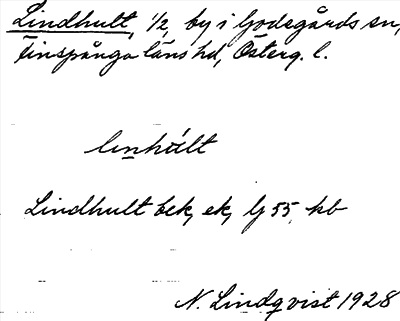 Lindhult, 1/2, by i Godegårds sn,
Finspånga läns hd, Österg. l.
linhúlt
Lindhult bck, ek, lj 55, kb
N. Lindqvist 1928